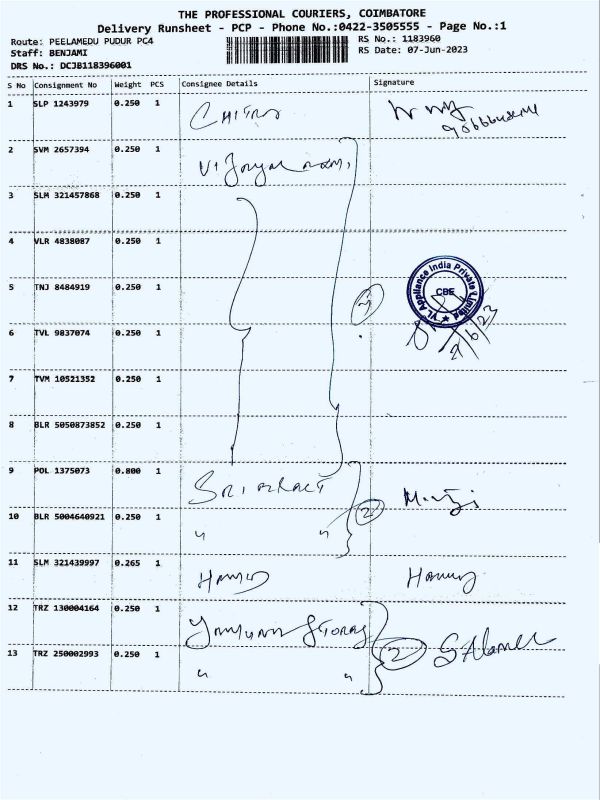 THE PROFESSIONAL COURIERS, COIMBATORE
Delivery Runsheet - PCP - Phone No.:0422-3505555 - Page No.:1
Route: PEELAMEDU PUDUR PC4 RS No.: 1183960
Staff: BENJAMI RS Date: 07-Jun-2023
DRS No.: DCJB118396001
S No Consignment No Weight PCS Consignee Details Signature
1 SLP 1243979 0.250 1
2 SVM 2657394 0.250 1
3 SLM 321457868 0.250 1
4 VLR 4838087 0.250 1
5 TNJ 8484919 0.250 1
VL Appliance India Private Limited
CBE
6 TVL 9837074 0.250 1
7 TVM 10521352 0.250 1
8 BLR 5050873852 0.250 1
9 POL 1375073 0.800 1
10 BLR 5004640921 0.250 1 " " 2
11 SLM 321439997 0.265 1
12 TRZ 130004164 0.250 1
13 TRZ 250002993 0.250 1 " " 2